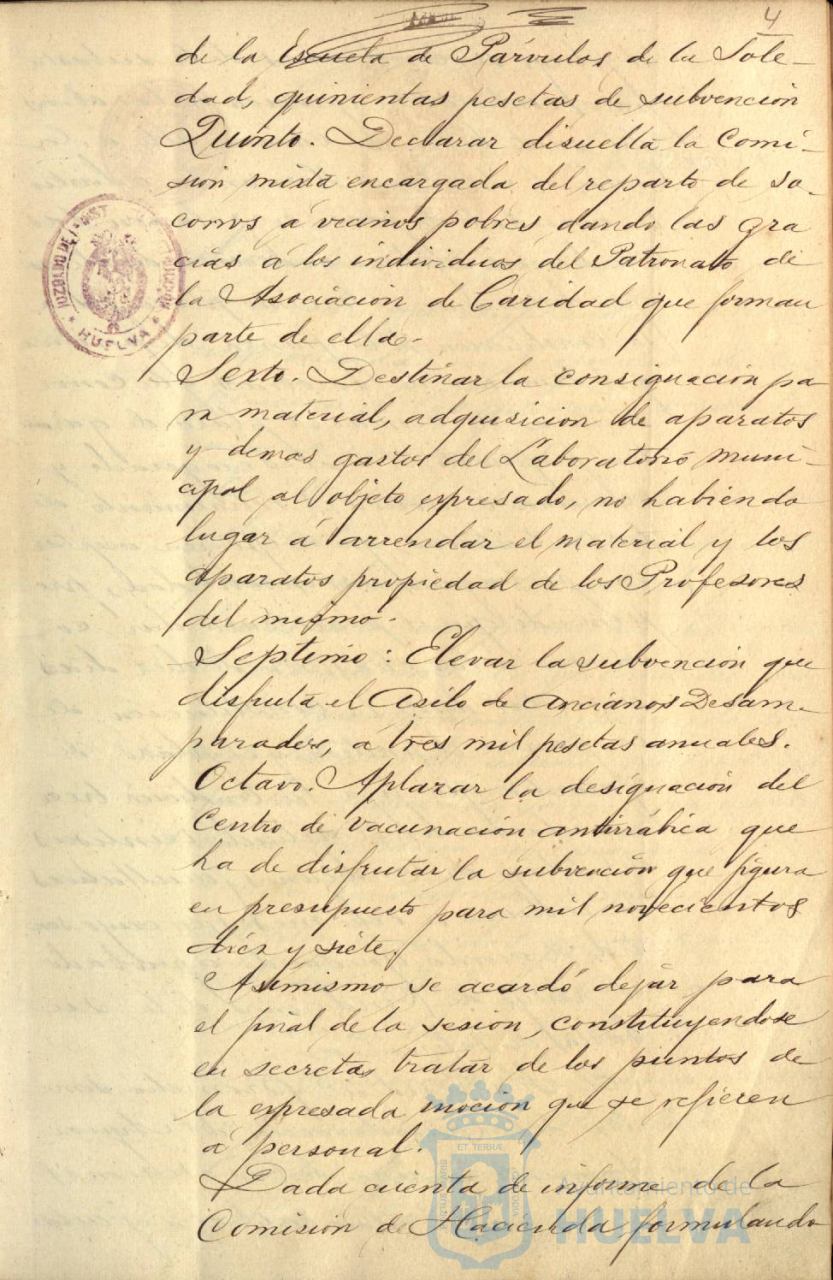 4
de la Escuela de Párvulos de la Sole-
dad, quinientas pesetas de subvención
Quinto. Declarar disuelta la Comi-
sión mixta encargada del reparto de so-
corros á vecinos pobres dando las gra
cias á los individuos del Patronato de
la Asociación de Caridad que forman
parte de ella.
Sexto. Destinar la consignación pa
ra material, adquisicion de aparatos
y demas gastos del Laboratorio muni-
cipal al objeto expresado, no habiendo
lugar á arrendar el material y los
aparatos propiedad de los Profesores
del mismo.
Septimo: Elevar la subvención que
disfruta el Asilo de Ancianos Desam-
parados, á tres mil pesetas anuales.
Octavo. Aplazar la designación del
Centro de vacunación antirrábica que
ha de disfrutar la subvención que figura
en presupuesto para mil novecientos
diez y siete.
Asimismo se acordó dejar para
el final de la sesion, constituyendose
en secreta, tratar de los puntos de
la expresada moción que se refieren
á personal.
Dada cuenta de informe de la
Comisión de Hacienda formulando
JUZGADO DE 1ª INST
HUELVA
ET TERRÆ
Ayuntamiento de
HUELVA